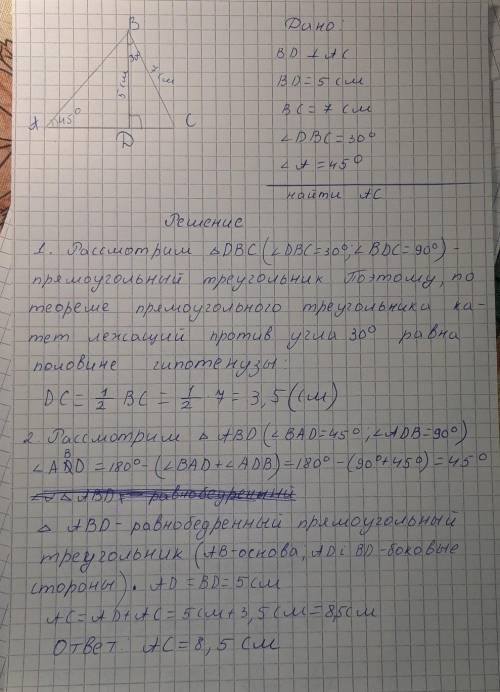 B
30
5 см
7 см
A
45°
D
C
Дано:
BD ⊥ AC
BD = 5 см
BC = 7 см
∠DBC = 30°
∠A = 45°
найти AC
Решение
1. Рассмотрим △DBC (∠DBC = 30°; ∠BDC = 90°) -
прямоугольный треугольник Поэтому, по
теореме прямоугольного треугольника ка-
тет лежащий против угла 30° равна
половине гипотенузы:
DC = 1/2 BC = 1/2 · 7 = 3,5 (см)
2. Рассмотрим △ ABD (∠BAD = 45°; ∠ADB = 90°)
∠ABD = 180° - (∠BAD + ∠ADB) = 180° - (90° + 45°) = 45°
△ ABD - равнобедренный
△ ABD - равнобедренный прямоугольный
треугольник (AB - основа, AD і BD - боковые
стороны). AD = BD = 5 см
AC = AD + AC = 5 см + 3,5 см = 8,5 см
Ответ: AC = 8,5 см